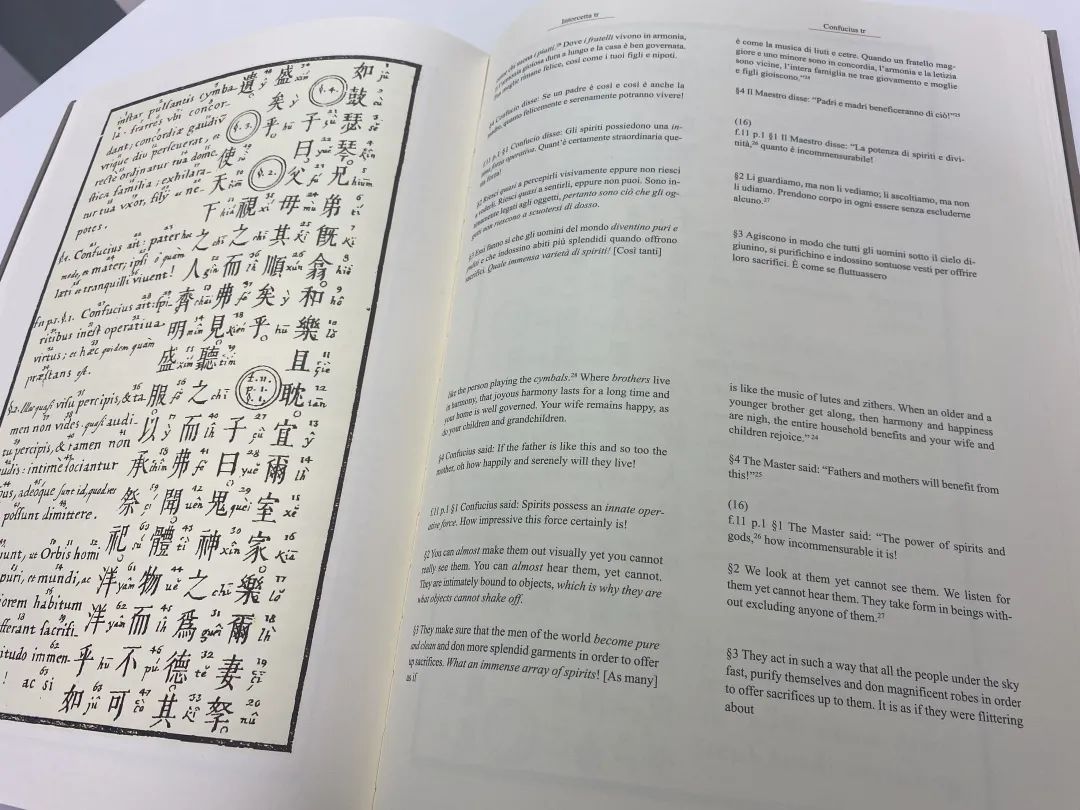 如鼓瑟琴兄弟既翕和樂且耽宜爾室家樂爾妻孥
§.4. 子曰父母其順矣乎 f.11. p.1. §.1. 子曰鬼神之爲德其
盛矣乎 §.2. 視之而弗見聽之而弗聞體物而不可
遺 §.3. 使天下之人齊明盛服以承祭祀洋洋乎如
instar pulsantis cymba-
la: fratres vbi concor-
dant; concordiæ gaudiū
vtique diu perseuerat, et
recte ordinatur tua dome-
stica familia; exhilara-
tur tua vxor, filÿ ac ne-
potes.
§.4. Confucius ait: pater hoc
modo, et mater; ipsi ô quam
læti et tranquilli viuent!
f.11 p.1. §.1. Confucius ait: spi-
ritibus inest operatiua
virtus; et hæc quidem quàm
præstans est.
§.2. Illos quasi visu percipis, & ta-
men non vides. quasi audi-
tu percipis, & tamen non
audis: intimè sociantur
adeoque sunt id, quod res
possunt dimittere.
ut Orbis homi
puri, et mundi, ac
habitum
sacrifi-
immen-
! ac si
Intorcetta tr
Dove i fratelli vivono in armonia,
gioiosa dura a lungo e la casa è ben governata.
rimane felice, così come i tuoi figli e nipoti.
§4 Confucio disse: Se un padre è così e così è anche la
madre, quanto felicemente e serenamente potranno vivere!
f.11 p.1 §1 Confucio disse: Gli spiriti possiedono una in-
forza operativa. Quant'è certamente straordinaria que-
forza!
§2 Riesci quasi a percepirli visivamente eppure non riesci
a vederli. Riesci quasi a sentirli, eppure non puoi. Sono in-
timamente legati agli oggetti, pertanto sono ciò che gli og-
getti non riescono a scuotersi di dosso.
§3 Essi fanno sì che gli uomini del mondo diventino puri e
puliti e che indossino abiti più splendidi quando offrono
sacrifici. Quale immensa varietà di spiriti! [Così tanti]
like the person playing the cymbals.28 Where brothers live
in harmony, that joyous harmony lasts for a long time and
your home is well governed. Your wife remains happy, as
do your children and grandchildren.
§4 Confucius said: If the father is like this and so too the
mother, oh how happily and serenely will they live!
f.11 p.1 §1 Confucius said: Spirits possess an innate oper-
ative force. How impressive this force certainly is!
§2 You can almost make them out visually yet you cannot
really see them. You can almost hear them, yet cannot.
They are intimately bound to objects, which is why they are
what objects cannot shake off.
§3 They make sure that the men of the world become pure
and clean and don more splendid garments in order to offer
up sacrifices. What an immense array of spirits! [As many]
as if
Confucius tr
è come la musica di liuti e cetre. Quando un fratello mag-
giore e uno minore sono in concordia, l'armonia e la letizia
sono vicine, l'intera famiglia ne trae giovamento e moglie
e figli gioiscono."24
§4 Il Maestro disse: "Padri e madri beneficeranno di ciò!"25
(16)
f.11 p.1 §1 Il Maestro disse: "La potenza di spiriti e divi-
nità,26 quanto è incommensurabile!
§2 Li guardiamo, ma non li vediamo; li ascoltiamo, ma non
li udiamo. Prendono corpo in ogni essere senza escluderne
alcuno.27
§3 Agiscono in modo che tutti gli uomini sotto il cielo di-
giunino, si purifichino e indossino sontuose vesti per offrire
loro sacrifici. È come se fluttuassero
is like the music of lutes and zithers. When an older and a
younger brother get along, then harmony and happiness
are nigh, the entire household benefits and your wife and
children rejoice."24
§4 The Master said: "Fathers and mothers will benefit from
this!"25
(16)
f.11 p.1 §1 The Master said: "The power of spirits and
gods,26 how incommensurable it is!
§2 We look at them yet cannot see them. We listen for
them yet cannot hear them. They take form in beings with-
out excluding anyone of them.27
§3 They act in such a way that all the people under the sky
fast, purify themselves and don magnificent robes in order
to offer sacrifices up to them. It is as if they were flittering
about